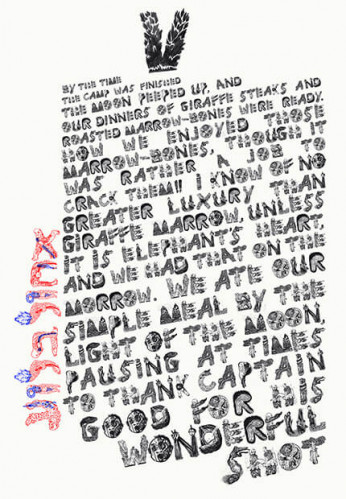 V
BY THE TIME
THE CAMP WAS FINISHED
THE MOON PEEPED UP, AND
OUR DINNERS OF GIRAFFE STEAKS AND
ROASTED MARROW-BONES WERE READY.
HOW WE ENJOYED THOSE
MARROW-BONES, THOUGH IT
WAS RATHER A JOB TO
CRACK THEM!! I KNOW OF NO
GREATER LUXURY THAN
GIRAFFE MARROW, UNLESS
IT IS ELEPHANT'S HEART,
AND WE HAD THAT ON THE
MORROW. WE ATE OUR
SIMPLE MEAL BY THE
LIGHT OF THE MOON,
PAUSING AT TIMES
TO THANK CAPTAIN
GOOD FOR HIS
WONDERFUL
SHOT